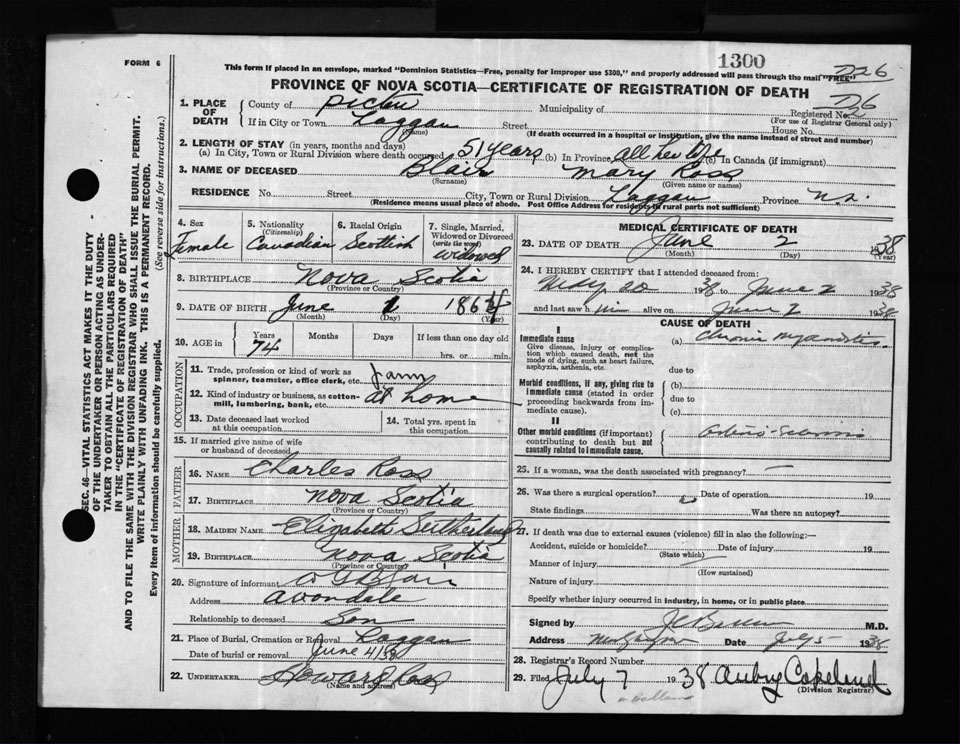 1300
226
FORM 6
This form if placed in an envelope, marked "Dominion Statistics—Free, penalty for improper use $300," and properly addressed will pass through the mail "FREE"
PROVINCE OF NOVA SCOTIA—CERTIFICATE OF REGISTRATION OF DEATH
Registered No.
(For use of Registrar General only)
1. PLACE OF DEATH
County of Pictou Municipality of
If in City or Town Laggan Street House No.
(Name) (If death occurred in a hospital or institution, give the name instead of street and number)
2. LENGTH OF STAY (in years, months and days)
(a) In City, Town or Rural Division where death occurred 51 years (b) In Province all her life (c) In Canada (if immigrant)
3. NAME OF DECEASED Blair Mary Ross
(Surname) (Given name or names)
RESIDENCE No. Street City, Town or Rural Division Laggan Province N.S.
(Residence means usual place of abode. Post Office Address for residents in rural parts not sufficient)
4. Sex Female
5. Nationality (Citizenship) Canadian
6. Racial Origin Scottish
7. Single, Married, Widowed or Divorced (write the word) widowed
8. BIRTHPLACE Nova Scotia
(Province or Country)
9. DATE OF BIRTH June 1 1864
(Month) (Day) (Year)
10. AGE in Years 74 Months Days If less than one day old
hrs. or min.
OCCUPATION
11. Trade, profession or kind of work as spinner, teamster, office clerk, etc. farm
12. Kind of industry or business, as cotton-mill, lumbering, bank, etc. at home
13. Date deceased last worked at this occupation
14. Total yrs. spent in this occupation
15. If married give name of wife or husband of deceased
FATHER
16. NAME Charles Ross
17. BIRTHPLACE Nova Scotia
(Province or Country)
MOTHER
18. MAIDEN NAME Elizabeth Sutherland
19. BIRTHPLACE Nova Scotia
(Province or Country)
20. Signature of informant Blair
Address Avondale
Relationship to deceased Son
21. Place of Burial, Cremation or Removal Laggan
Date of burial or removal June 4/38
22. UNDERTAKER Howard Ross
(Name and address)
MEDICAL CERTIFICATE OF DEATH
23. DATE OF DEATH June 2 1938
(Month) (Day) (Year)
24. I HEREBY CERTIFY that I attended deceased from:
May 20 1938 to June 2 1938
and last saw h alive on June 2 1938
CAUSE OF DEATH
I
Immediate cause
Give disease, injury or complication which caused death, not the mode of dying, such as heart failure, asphyxia, asthenia, etc.
(a) Chronic myocarditis
due to
Morbid conditions, if any, giving rise to immediate cause (stated in order proceeding backwards from immediate cause).
(b)
due to
(c)
II
Other morbid conditions (if important) contributing to death but not causally related to immediate cause.
25. If a woman, was the death associated with pregnancy? —
26. Was there a surgical operation? Date of operation 19
State findings Was there an autopsy?
27. If death was due to external causes (violence) fill in also the following:—
Accident, suicide or homicide? Date of injury 19
(State which)
Manner of injury
(How sustained)
Nature of injury
Specify whether injury occurred in industry, in home, or in public place
Signed by M.D.
Address Date July 5 1938
28. Registrar's Record Number
29. Filed July 7 1938 Aubry Copeland
(Division Registrar)
SEC. 46— VITAL STATISTICS ACT MAKES IT THE DUTY
OF THE UNDERTAKER OR PERSON ACTING AS UNDER-
TAKER TO OBTAIN ALL THE PARTICULARS REQUIRED
IN THE "CERTIFICATE OF REGISTRATION OF DEATH"
AND TO FILE THE SAME WITH THE DIVISION REGISTRAR WHO SHALL ISSUE THE BURIAL PERMIT.
WRITE PLAINLY WITH UNFADING INK. THIS IS A PERMANENT RECORD.
Every item of information should be carefully supplied. (See reverse side for instructions.)